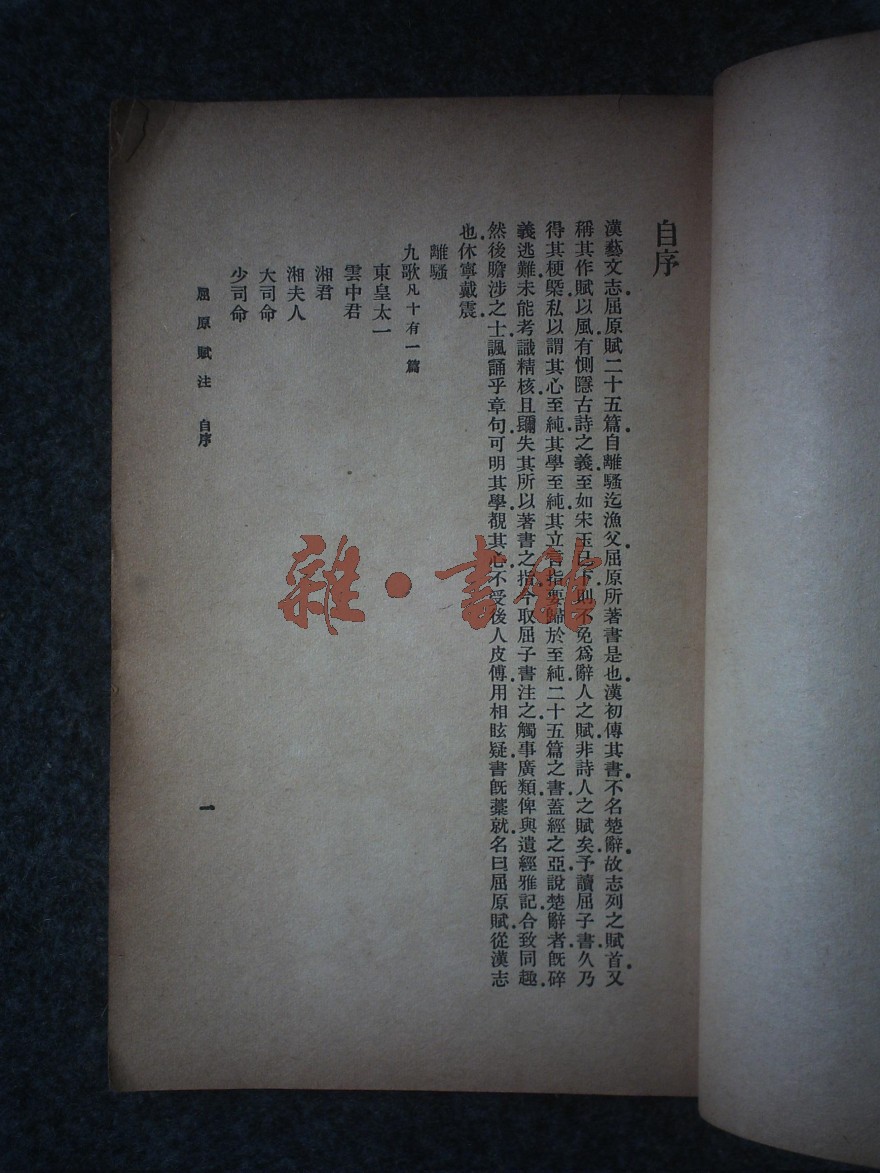 自序
漢藝文志屈原賦二十五篇自離騷迄漁父屈原所著書是也漢初傳其書不名楚辭故志列之賦首又
稱其作賦以風有惻隱古詩之義至如宋玉已下則不免爲辭人之賦非詩人之賦矣予讀屈子書久乃
得其梗槩私以謂其心至純其學至純其立言指要歸於至純二十五篇之書蓋經之亞說楚辭者既碎
義逃難未能考識精核且彌失其所以著書之指今取屈子書注之觸事廣類俾與遺經雅記合致同趣
然後贍涉之士諷誦乎章句可明其學覩其心不受後人皮傅用相眩疑書既藁就名曰屈原賦從漢志
也休寧戴震
離騷
九歌凡十有一篇
東皇太一
雲中君
湘君
湘夫人
大司命
少司命
屈原賦注 自序
一
雜·書館